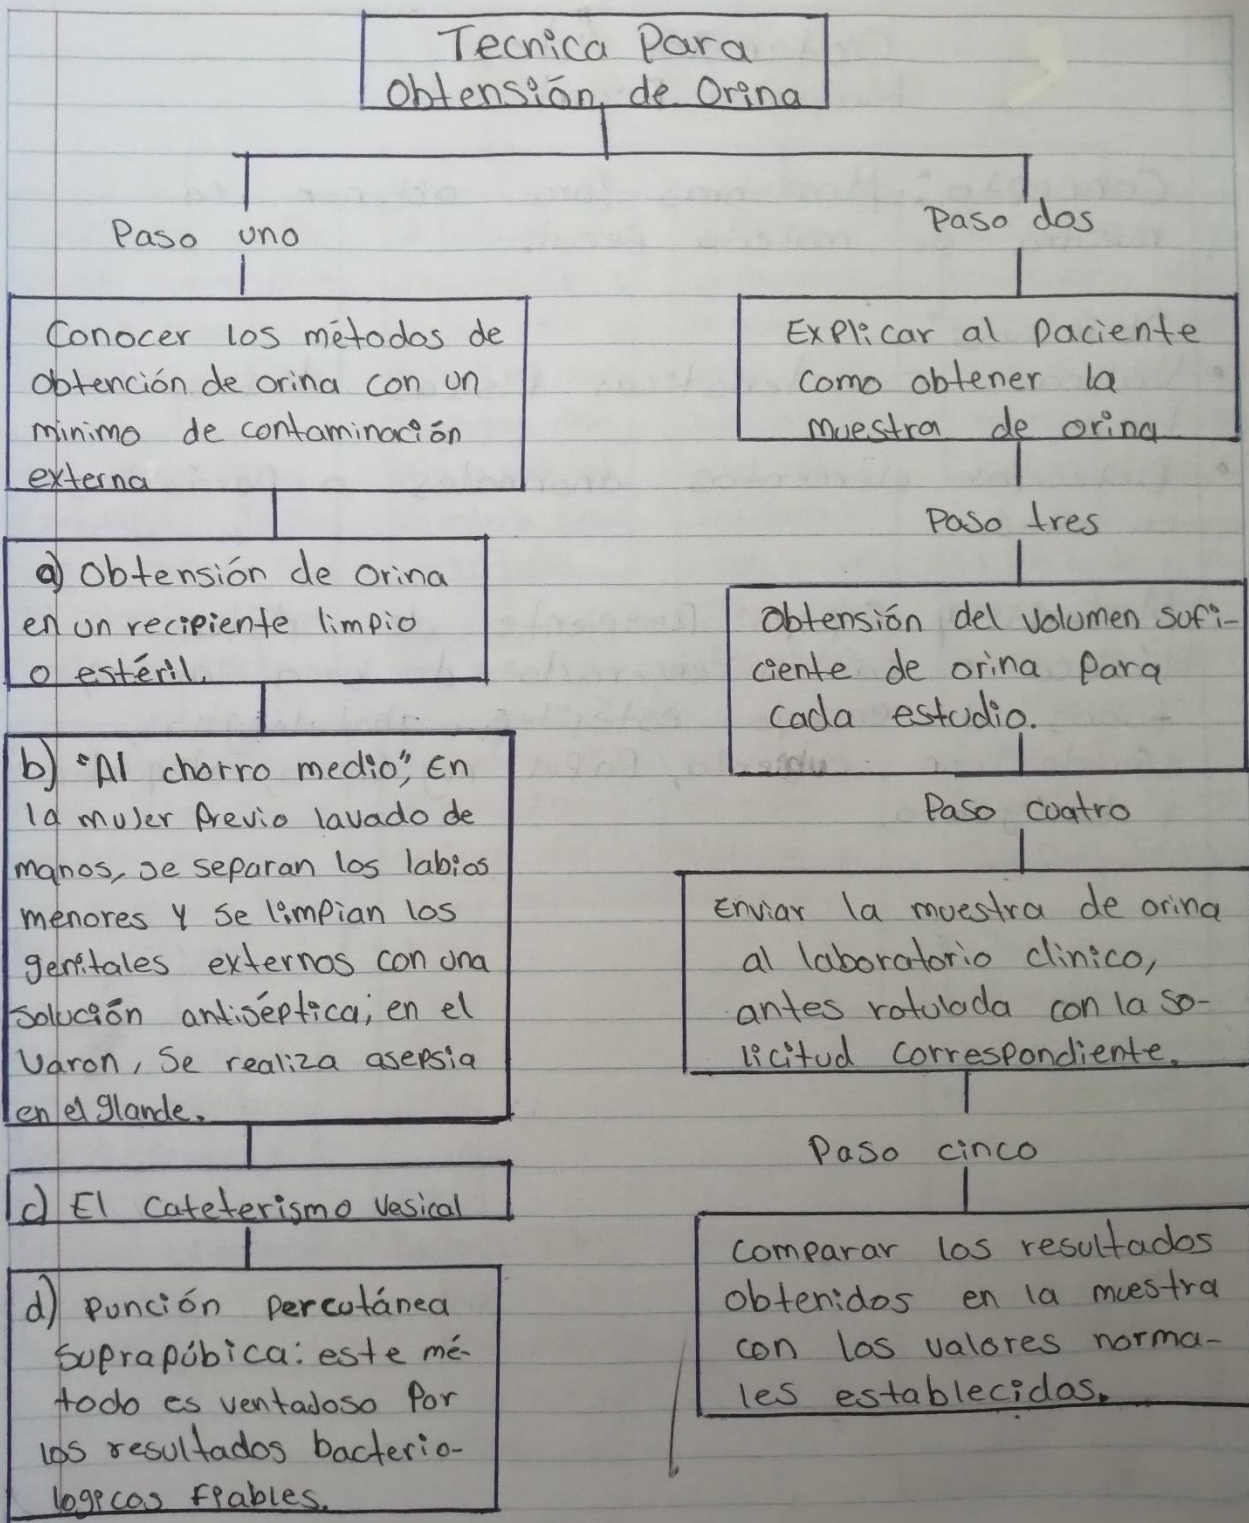 Tecnica Para
Obtensión de Orina
Paso uno
Conocer los métodos de
obtención de orina con un
minimo de contaminación
externa
a) Obtensión de orina
en un recipiente limpio
o estéril.
b) "Al chorro medio", En
la mujer Previo lavado de
manos, se separan los labios
menores y se limpian los
genitales externos con una
solución antiséptica; en el
Varon, Se realiza asepsia
en el glande.
c) El Cateterismo Vesical
d) Punción Percutánea
Suprapúbica: este mé-
todo es ventajoso Por
los resultados bacterio-
logicos fiables.
Paso dos
Explicar al Paciente
como obtener la
muestra de orina
Paso tres
Obtensión del Volumen sufi-
ciente de orina Para
cada estudio.
Paso cuatro
Enviar la muestra de orina
al laboratorio clinico,
antes rotulada con la so-
licitud correspondiente.
Paso cinco
Comparar los resultados
obtenidos en la muestra
con los valores norma-
les establecidos.